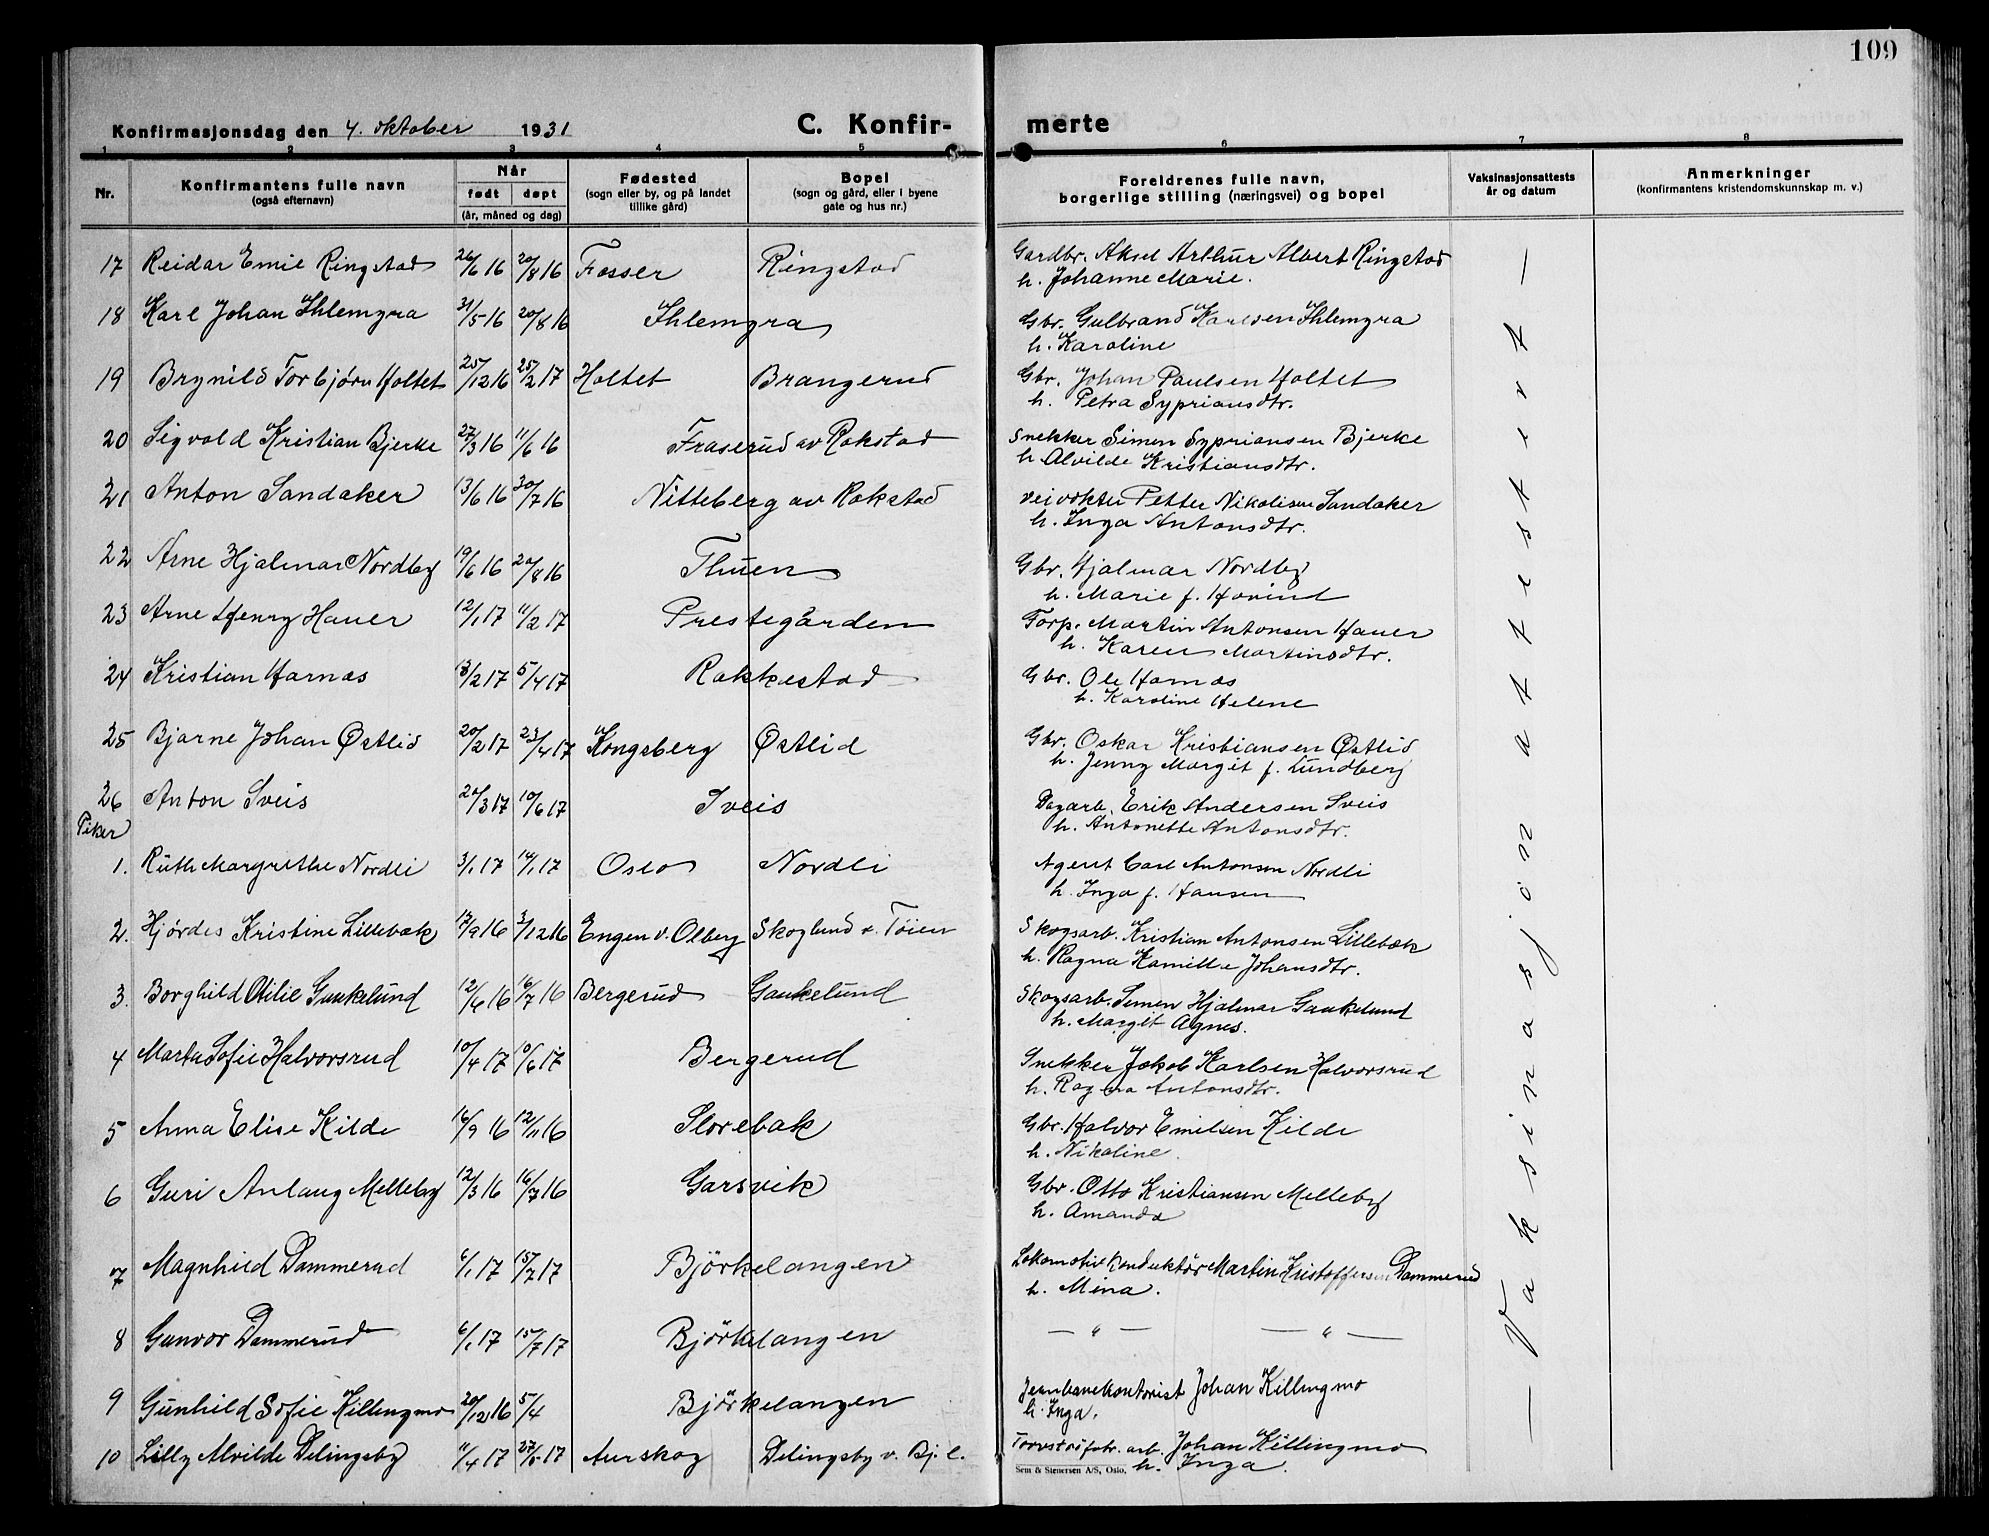 109
Konfirmasjonsdag den 4. oktober 1931 C. Konfir- merte
1 2 3 4 5 6 7 8
Nr. Konfirmantens fulle navn (også efternavn) Når født døpt (år, måned og dag) Fødested (sogn eller by, og på landet tillike gård) Bopel (sogn og gård, eller i byene gate og hus nr.) Foreldrenes fulle navn, borgerlige stilling (næringsvei) og bopel Vaksinasjonsattests år og datum Anmerkninger (konfirmantens kristendomskunnskap m. v.)
17 Reidar Emil Ringstad 26/6 16 20/8 16 Fosser Ringstad Gardbr. Aksel Arthur Albert Ringstad —
h. Johanne Marie.
18 Karl Johan Ihlemyra 31/5 16 20/8 16 Ihlemyra Gbr. Gulbrand Karlsen Ihlemyra
h. Karoline
19 Brynild Torbjørn Holtet 25/12 16 25/2 17 Holtet Brangerud Gbr. Johan Paulsen Holtet
h. Petra Sypriansdtr.
20 Sigvald Kristian Bjerke 27/3 16 11/6 16 Fraserud av Rakstad Snekker Simen Sypriansen Bjerke
h Alvilde Kristiansdtr.
21 Anton Sandaker 13/6 16 30/7 16 Nitteberg av Rakstad Veivokter Petter Nikolisen Sandaker
h. Inga Antonsdtr.
22 Arne Hjalmar Nordby 19/6 16 20/8 16 Thuen Gbr. Hjalmar Nordby
h. Marie f. Hovind
23 Arne Henry Hauer 12/1 17 11/2 17 Prestegården Forp. Martin Antonsen Hauer
h. Karen Martinsdtr.
24 Kristian Harnæs /2 17 5/4 17 Rakkestad Gbr. Ole Harnæs
h. Karoline Helene
25 Bjarne Johan Østlid 20/2 17 23/4 17 Kongsberg Østlid Gbr. Oskar Kristiansen Østlid
h. Jenny Margit f. Lundberg
26 Anton Sveis 20/3 17 10/6 17 Sveis Dagarb. Erik Andersen Sveis
Piker h. Antonette Antonsdtr.
1. Ruth Margrethe Nordli 3/1 17 14/1 17 Oslo Nordli Agent Carl Antonsen Nordli
h. Inga f. Hansen
2. Hjørdis Kristine Lillebæk 17/9 16 3/12 16 Engen v. Olberg Skoglund v. Tøien Skogsarb. Kristian Antonsen Lillebæk
h. Ragna Kamilla Johansdtr.
3. Borghild Otilie Gaukelund 12/6 16 16/7 16 Bergerud Gaukelund Skogsarb. Simen Hjalmar Gaukelund
h. Margit Agnes.
4 Marta Sofie Halvorsrud 10/4 17 10/6 17 Bergerud Snekker Jakob Karlsen Halvorsrud
h. Ragna Antonsdtr.
5 Anna Elise Kilde 16/9 16 12/11 16 Slorebæk Gbr. Halvor Emilsen Kilde
h. Nikoline.
6 Guri Anlaug Melleby 12/3 16 16/7 16 Garsvik Gbr. Otto Kristiansen Melleby
h. Amanda
7 Magnhild Dammerud 6/1 17 15/7 17 Björkelangen Lokomotivkonduktør Martin Kristoffersen Dammerud
h. Mina.
8 Gunvor Dammerud 6/1 17 15/7 17 Björkelangen — " — — " —
9 Gunhild Sofie Killingmo 20/12 16 5/4 Björkelangen Jernbanekontorist Johan Killingmo
h. Inga.
10 Lilly Alvilde Delingsby 11/4 17 27/5 17 Aurskog Delingsby v. Bj. l. Torvstrøfabr. arb. Johan Killingmo
h. Inga.
Vaksinasjonsattest —
Sem & Stenersen A/S, Oslo.